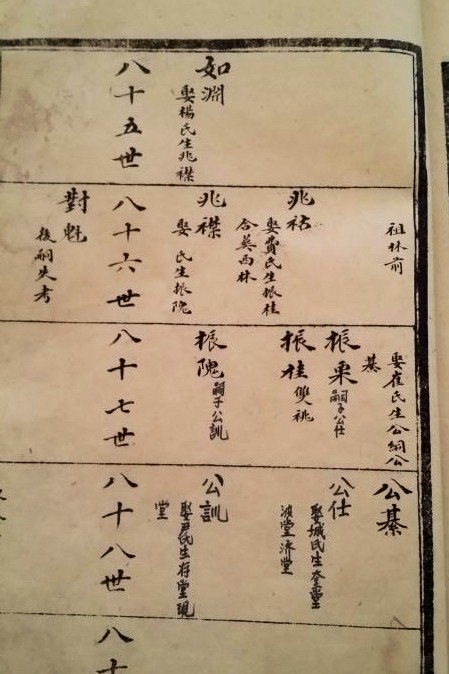 祖林前
兆祜
娶費民生振桂
合葬西林
娶崔氏生公綱公
綦
振栗
嗣子公仕
振桂
雙祧
公綦
公仕
波堂濟堂
如淵
娶楊氏生兆襟
兆襟
娶 民生振隗
振隗
嗣子公訓
公訓
娶尹氏生存堂現
堂
八十五世
八十六世
八十七世
八十八世
八十
對魁
後嗣失考